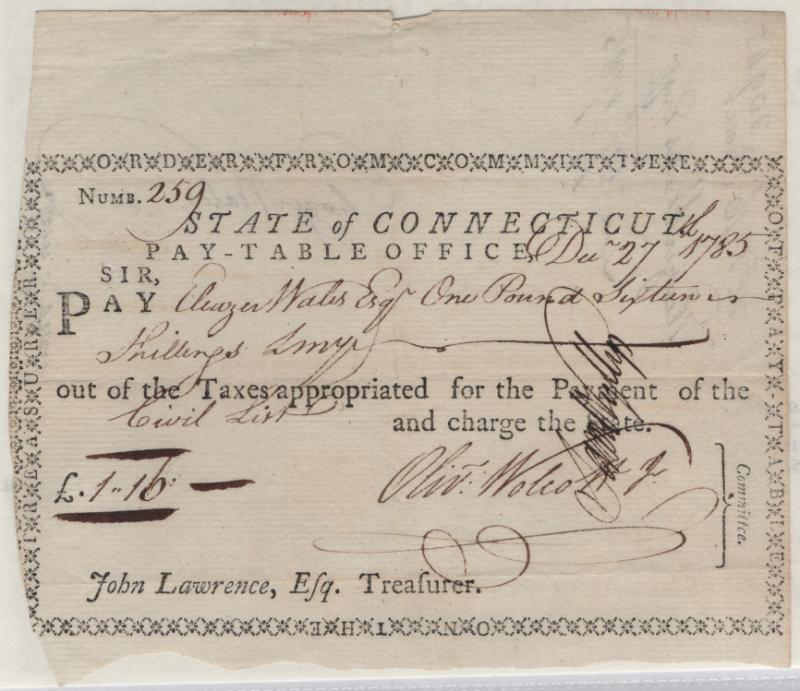 ORDER FROM COMMITTEE
OF PAY-TABLE
ON THE
TREASURER
NUMB. 259
STATE of CONNECTICUT
PAY-TABLE OFFICE, Decr 27th 1785
SIR,
PAY Eleazer Wales Esqr One Pound Sixteen
Shillings Lmy
out of the Taxes appropriated for the Payment of the
Civil List and charge the State.
£.1"16"
Olivr. Wolcott Jr
Committee.
John Lawrence, Eſq. Treaſurer.